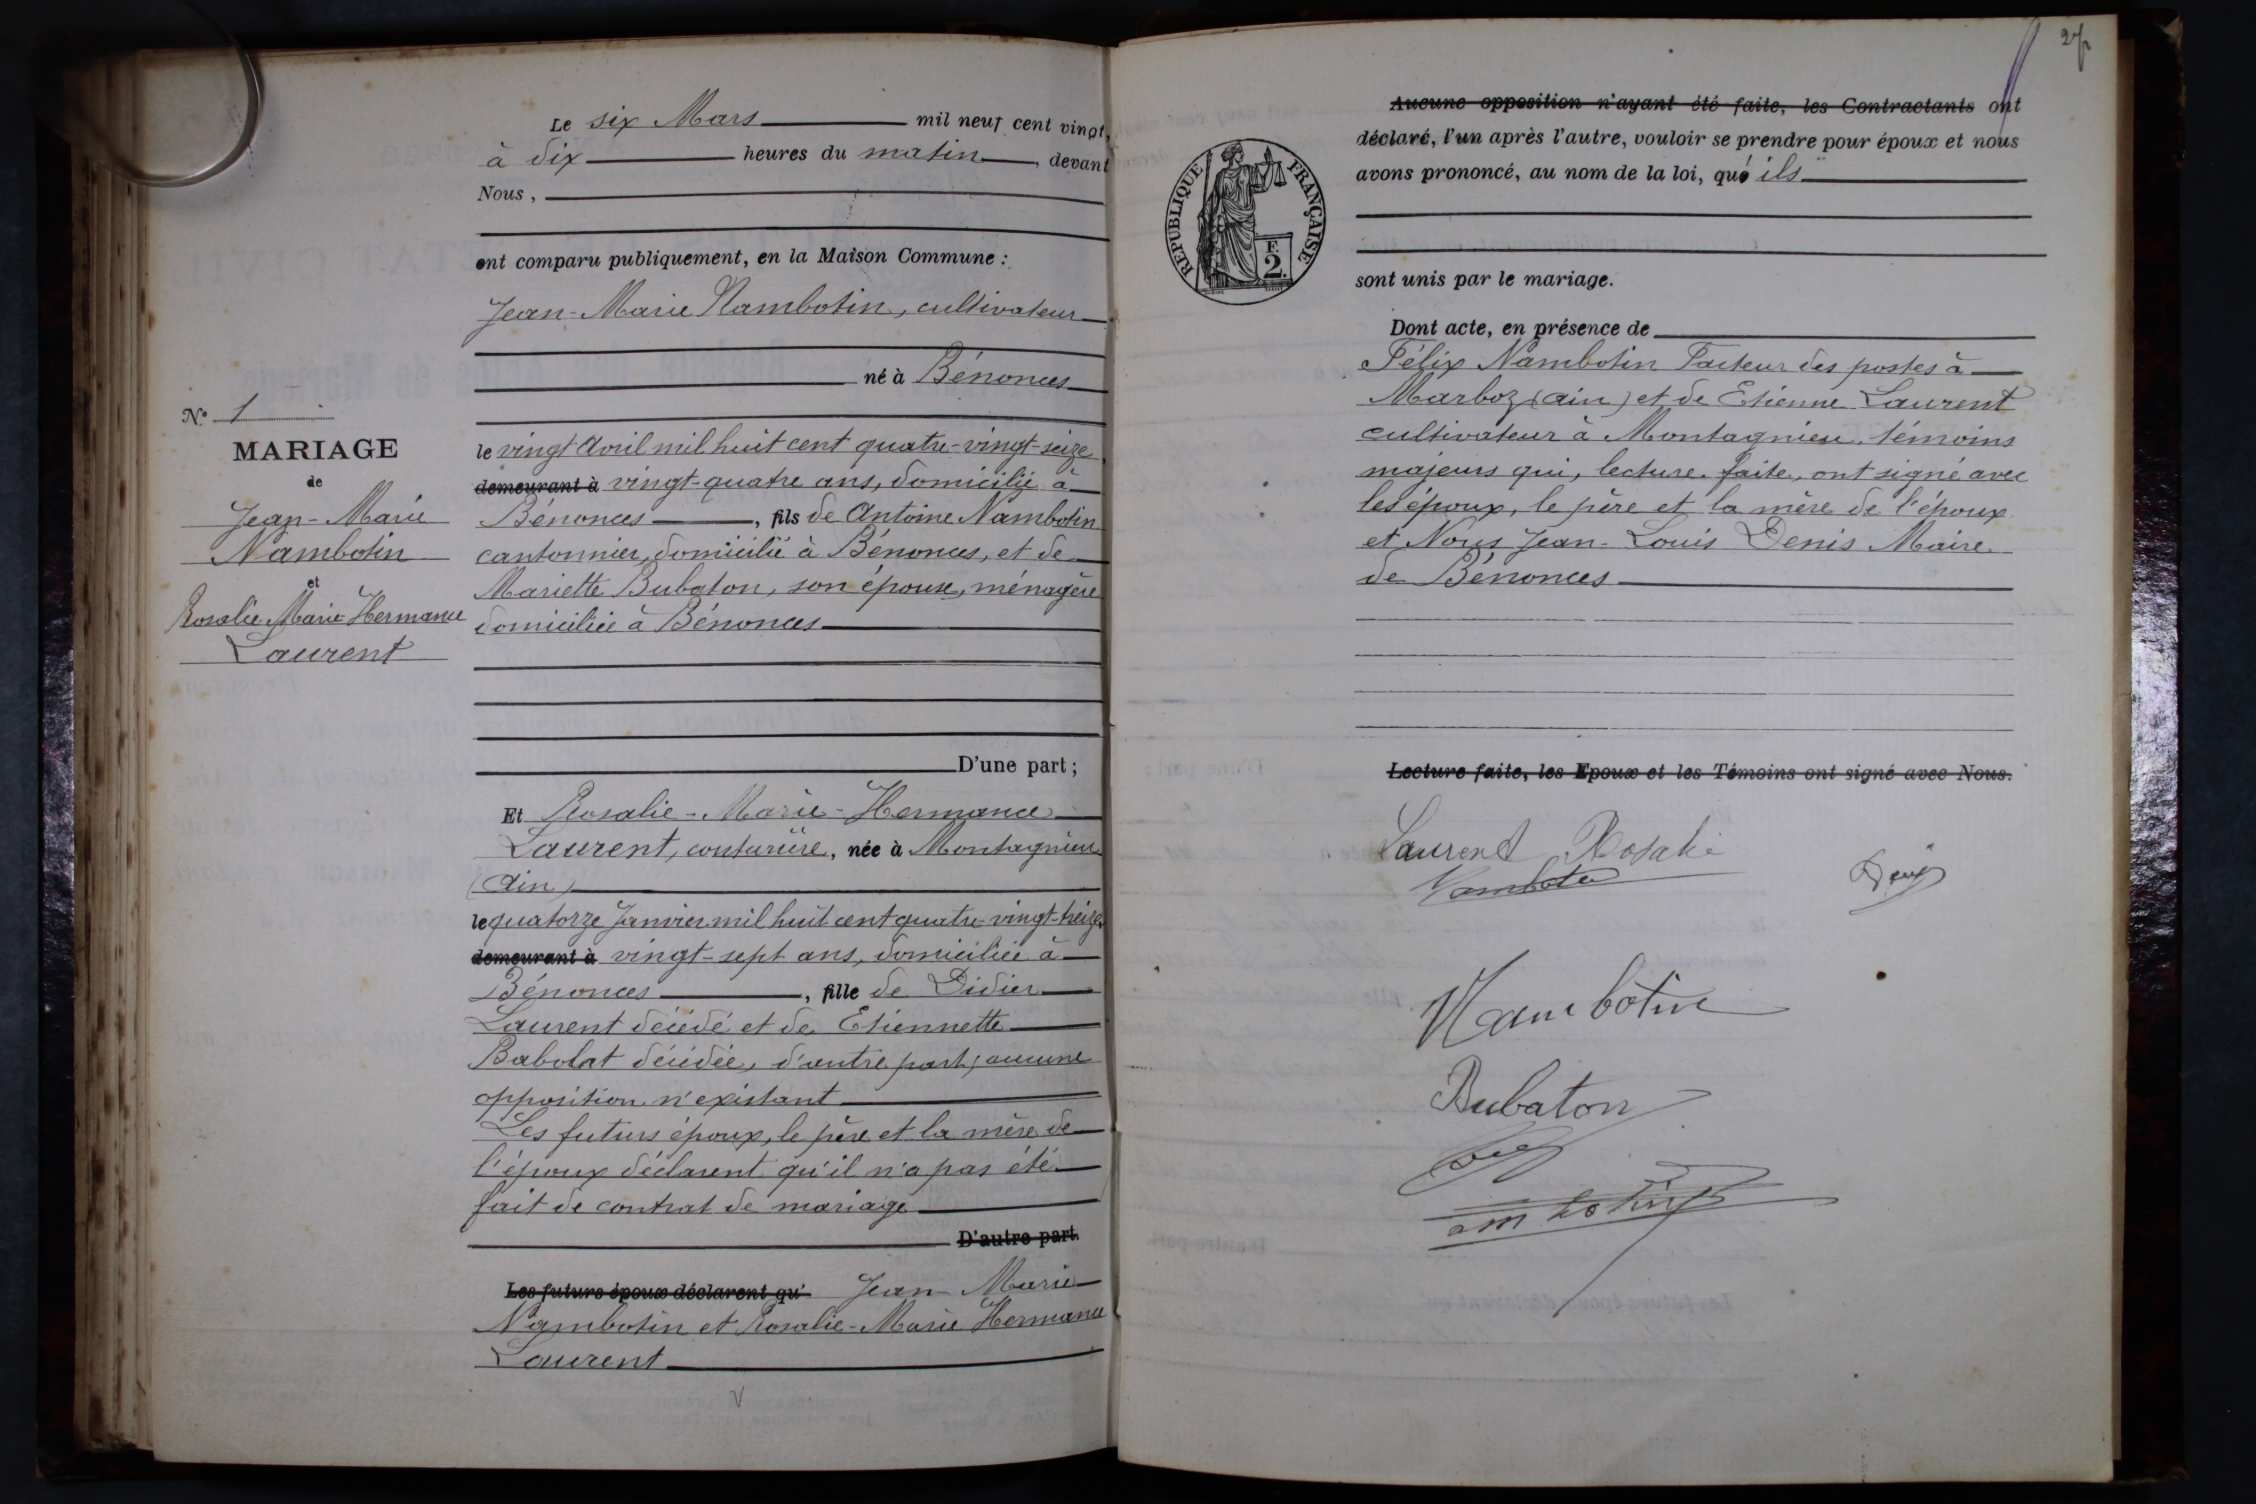 Le six Mars mil neuf cent vingt,
à dix heures du matin, devant
Nous,
ont comparu publiquement, en la Maison Commune :
Jean-Marie Nambotin, cultivateur
né à Bénonces
le vingt Avril mil huit cent quatre-vingt-seize
demeurant à vingt-quatre ans, domicilié à
Bénonces, fils de Antoine Nambotin
cantonnier, domicilié à Bénonces, et de
Mariette Bubaton, son épouse, ménagère
domiciliée à Bénonces
D'une part ;
Et Rosalie-Marie-Hermance
Laurent, couturière, née à Montagnieu
(Ain)
le quatorze Janvier mil huit cent quatre-vingt-treize
demeurant à vingt-sept ans, domiciliée à
Bénonces, fille de Didier
Laurent décédé et de Etiennette
Babolat décédée, d'autre part, aucune
opposition n'existant
Les futurs époux, le père et la mère de
l'époux déclarent qu'il n'a pas été
fait de contrat de mariage
D'autre part.
Les futurs époux déclarent qu' Jean-Marie
Nambotin et Rosalie-Marie Hermance
Laurent
N° 1
MARIAGE
de
Jean-Marie
Nambotin
et
Rosalie Marie Hermance
Laurent
27
Aucune opposition n'ayant été faite, les Contractants ont
déclaré, l'un après l'autre, vouloir se prendre pour époux et nous
avons prononcé, au nom de la loi, qu'ils
sont unis par le mariage.
RÉPUBLIQUE FRANÇAISE
F.
2
Dont acte, en présence de
Félix Nambotin Facteur des postes à
Marboz (ain) et de Etienne Laurent
cultivateur à Montagnieu, témoins
majeurs qui, lecture faite, ont signé avec
les époux, le père et la mère de l'époux
et Nous Jean-Louis Denis Maire
de Bénonces
Lecture faite, les Epoux et les Témoins ont signé avec Nous.
Laurent Rosalie
Nambotin
Denis
Nambotin
Bubaton